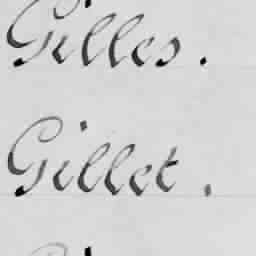 Gilles.
Gillet.